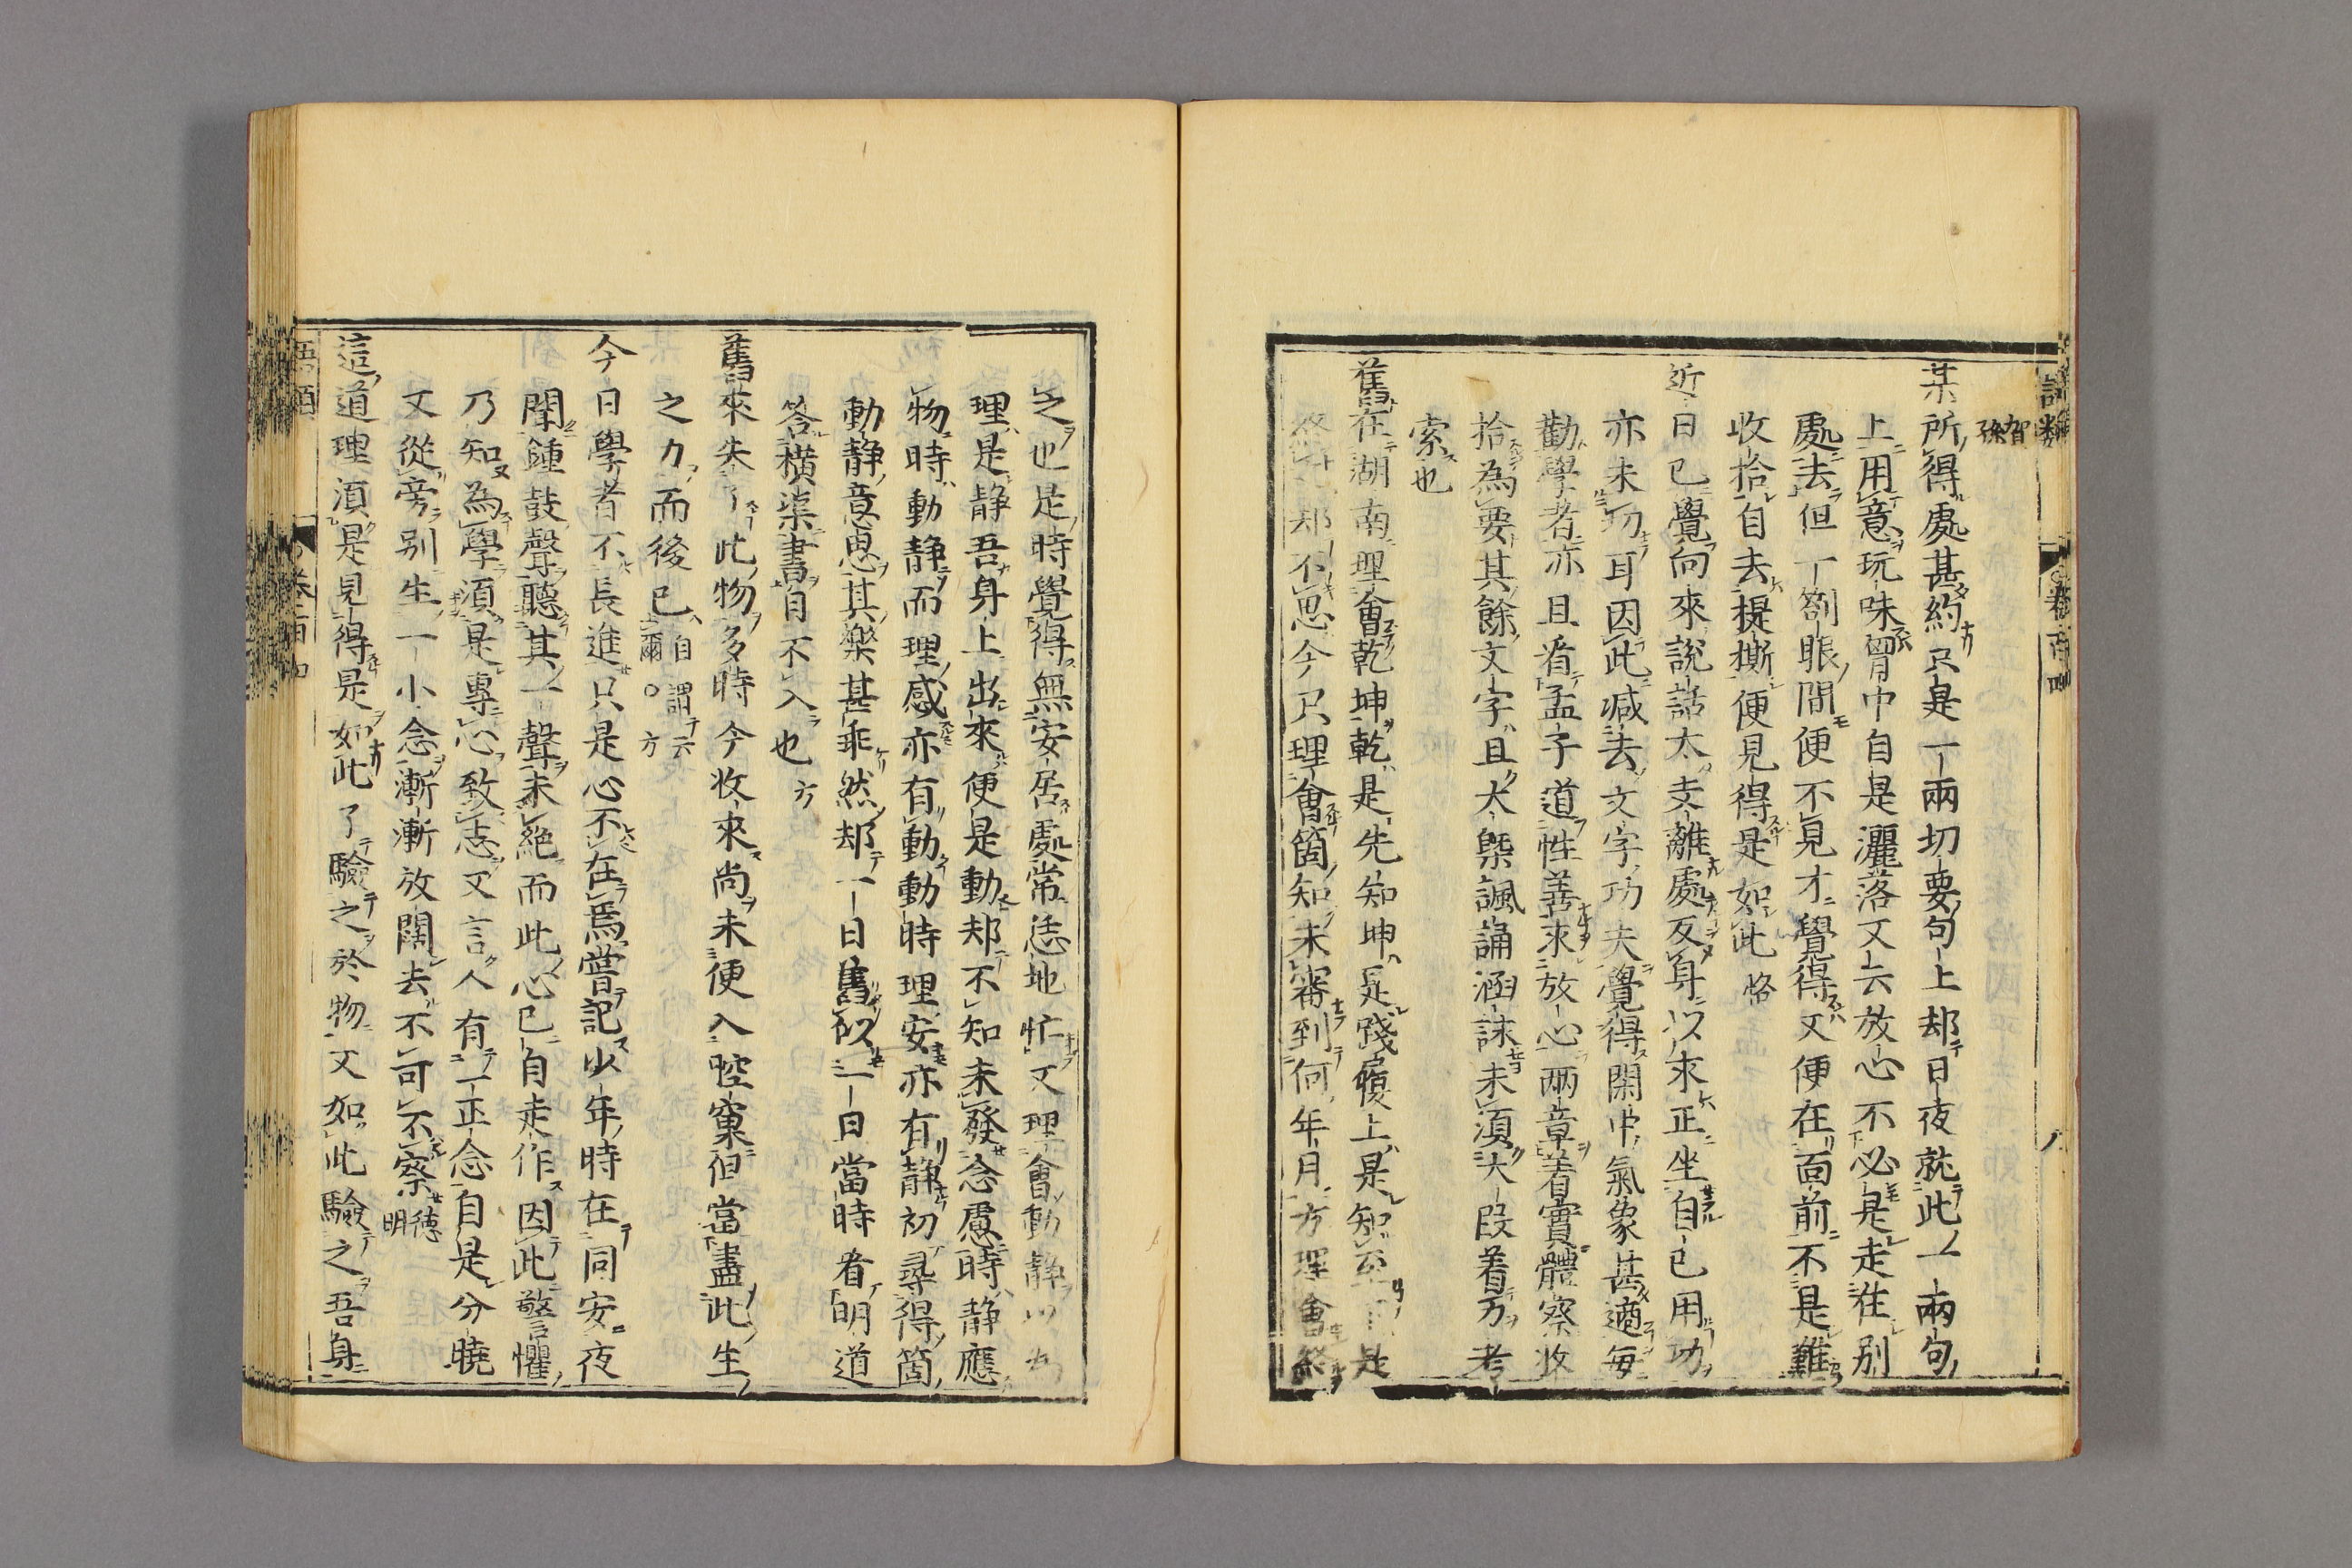 語類
卷百四
八
賀孫
某所得處甚約只是一兩切要句上却日夜就此一兩句
上用意玩味胷中自是灑落又云放心不必是走在別
處去但一劄眼間便不見才覺得又便在面前不是難
收拾自去提撕便見得是如此 恪
近日已覺向來說話太支離處反身以求正坐自己用功
亦未切耳因此減去文字功夫覺得閑中氣象甚適每
勸學者亦且看孟子道性善求放心兩章着實體察收
拾為要其餘文字且大槩諷誦涵詠未須大段着力考
索也
舊在湖南理會乾坤乾是先知坤是踐履上是知至下是
終之却不思今只理會箇知未審到何年月方理會終
之也是時覺得無安居處常恁地忙又理會動靜以為
理是靜吾身上出來便是動却不知未發念慮時靜應
物時動靜而理感亦有動動時理安亦有靜初尋得箇
動靜意思其樂甚乖然却一日舊似一日當時看明道
答橫渠書自不入也 方
舊來失了此物多時今收來尚未便入腔窠但當盡此生
之力而後已 自謂云爾○方
今日學者不長進只是心不在焉嘗記少年時在同安夜
聞鍾鼓聲聽其一聲未絕而此心已自走作因此警懼
乃知為學須是專心致志又言人有一正念自是分曉
又從旁別生一小念漸漸放闊去不可不察 德明
這道理須是見得是如此了驗之於物又如此驗之吾身